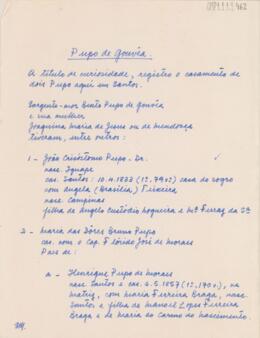 Pupo de Gouvêa.
A título de curiosidade, registro o casamento de
dois Pupo aqui em Santos.
Sargento-mor Bento Pupo de Gouvêa
e sua mulher
Joaquina Maria de Jesus ou de Mendonça
tiveram, entre outros:
1 - João Crisóstomo Pupo - Dr.
nasc. Iguape
cas. Santos: 10.4.1833 (1º.79v2) casa do sogro
com Angela (Brasília) Teixeira
nasc. Campinas
filha de Angelo Custódio Nogueira e Mª Ferraz da Sª
2 - Maria das Dôres Bruno Pupo
cas. com o cap. Flórido José de Morais
Pais de:
a - Henrique Pupo de Morais
nasc Santos e cas. 2.5.1857 (1º.170v.), na
matriz, com Maria Ferreira Braga, nasc.
Santos e filha de Manoel Lopes Ferreira
Braga e de Maria do Carmo do Nascimento.